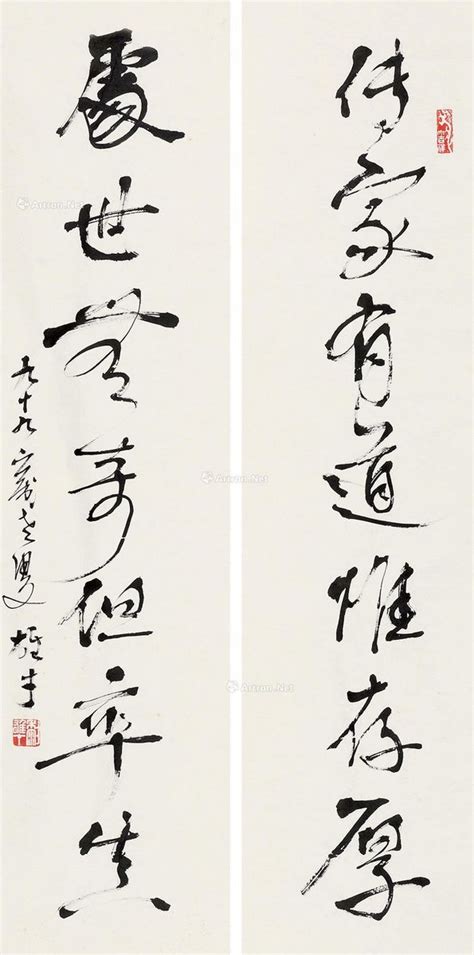 传家有道惟存厚
處世無奇但率真
九十九老叟雄才
Artron.Net
Artron.Net
Artron.Net